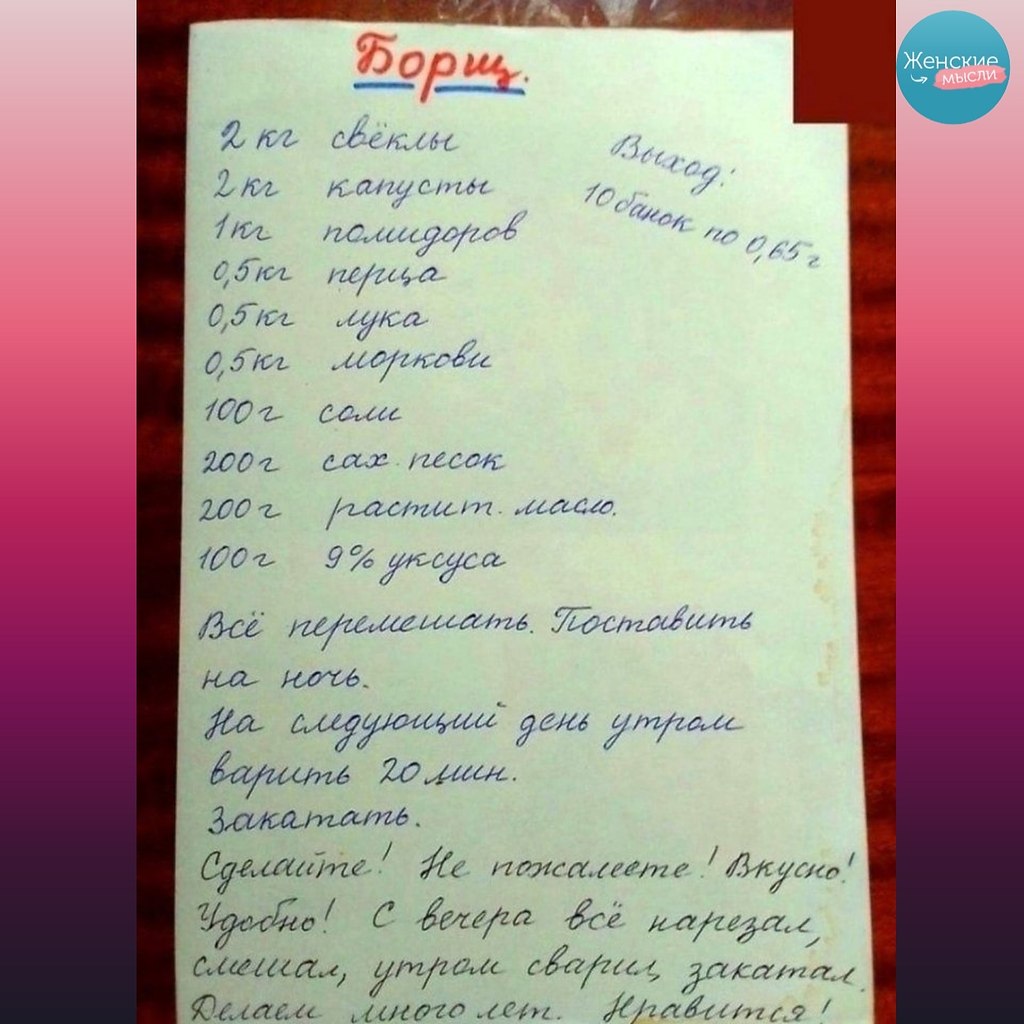 Женские
мысли
Борщ.
2 кг свёклы
2 кг капусты
1 кг помидоров
0,5 кг перца
0,5 кг лука
0,5 кг моркови
100 г соли
200 г сах. песок
200 г растит. масло.
100 г 9% уксуса
Выход:
10 банок по 0,65 г
Всё перемешать. Поставить
на ночь.
На следующий день утром
варить 20 мин.
Закатать.
Сделайте! Не пожалеете! Вкусно!
Удобно! С вечера всё нарезал,
смешал, утром сварил, закатал.
Делаем много лет. Нравится!